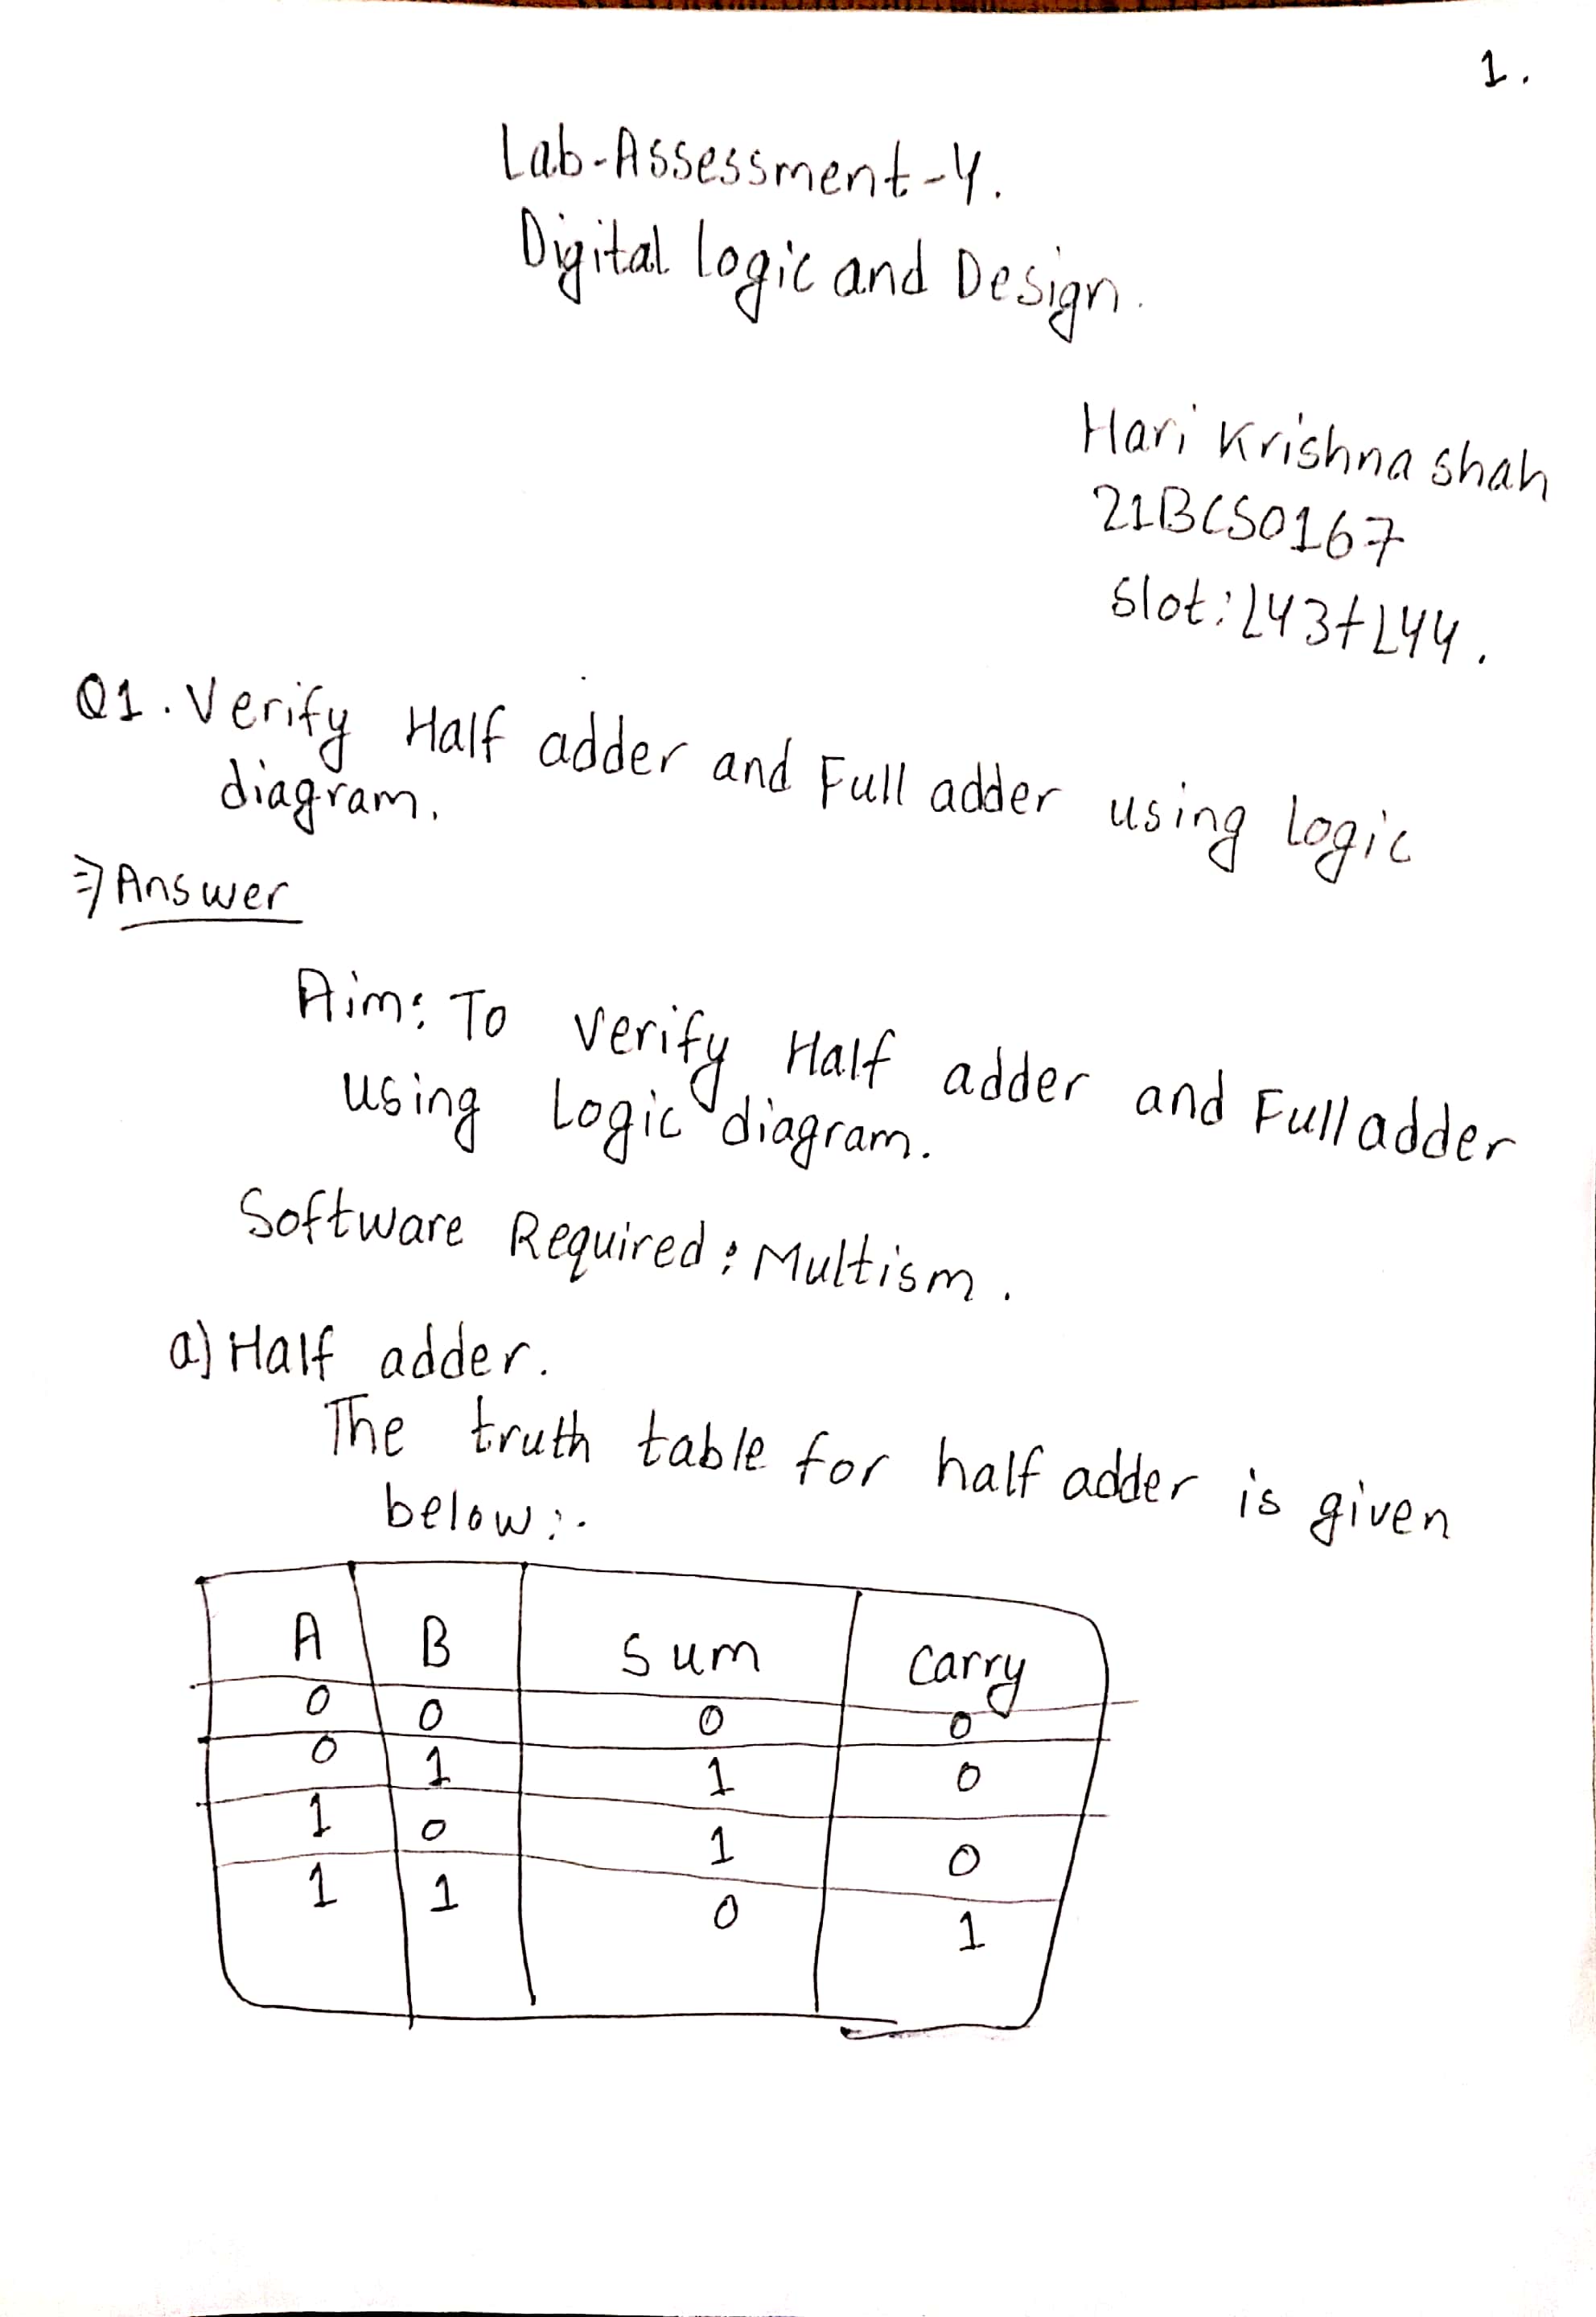 1.
Lab-Assessment-4.
Digital logic and Design.
Hari Krishna shah
21BCS0167
Slot: L43+L44.
Q1. Verify Half adder and Full adder using logic
diagram.
⇒ Answer
Aim: To verify Half adder and Full adder
using Logic diagram.
Software Required: Multism.
a) Half adder.
The truth table for half adder is given
below:-
A B Sum Carry
0 0 0 0
0 1 1 0
1 0 1 0
1 1 0 1